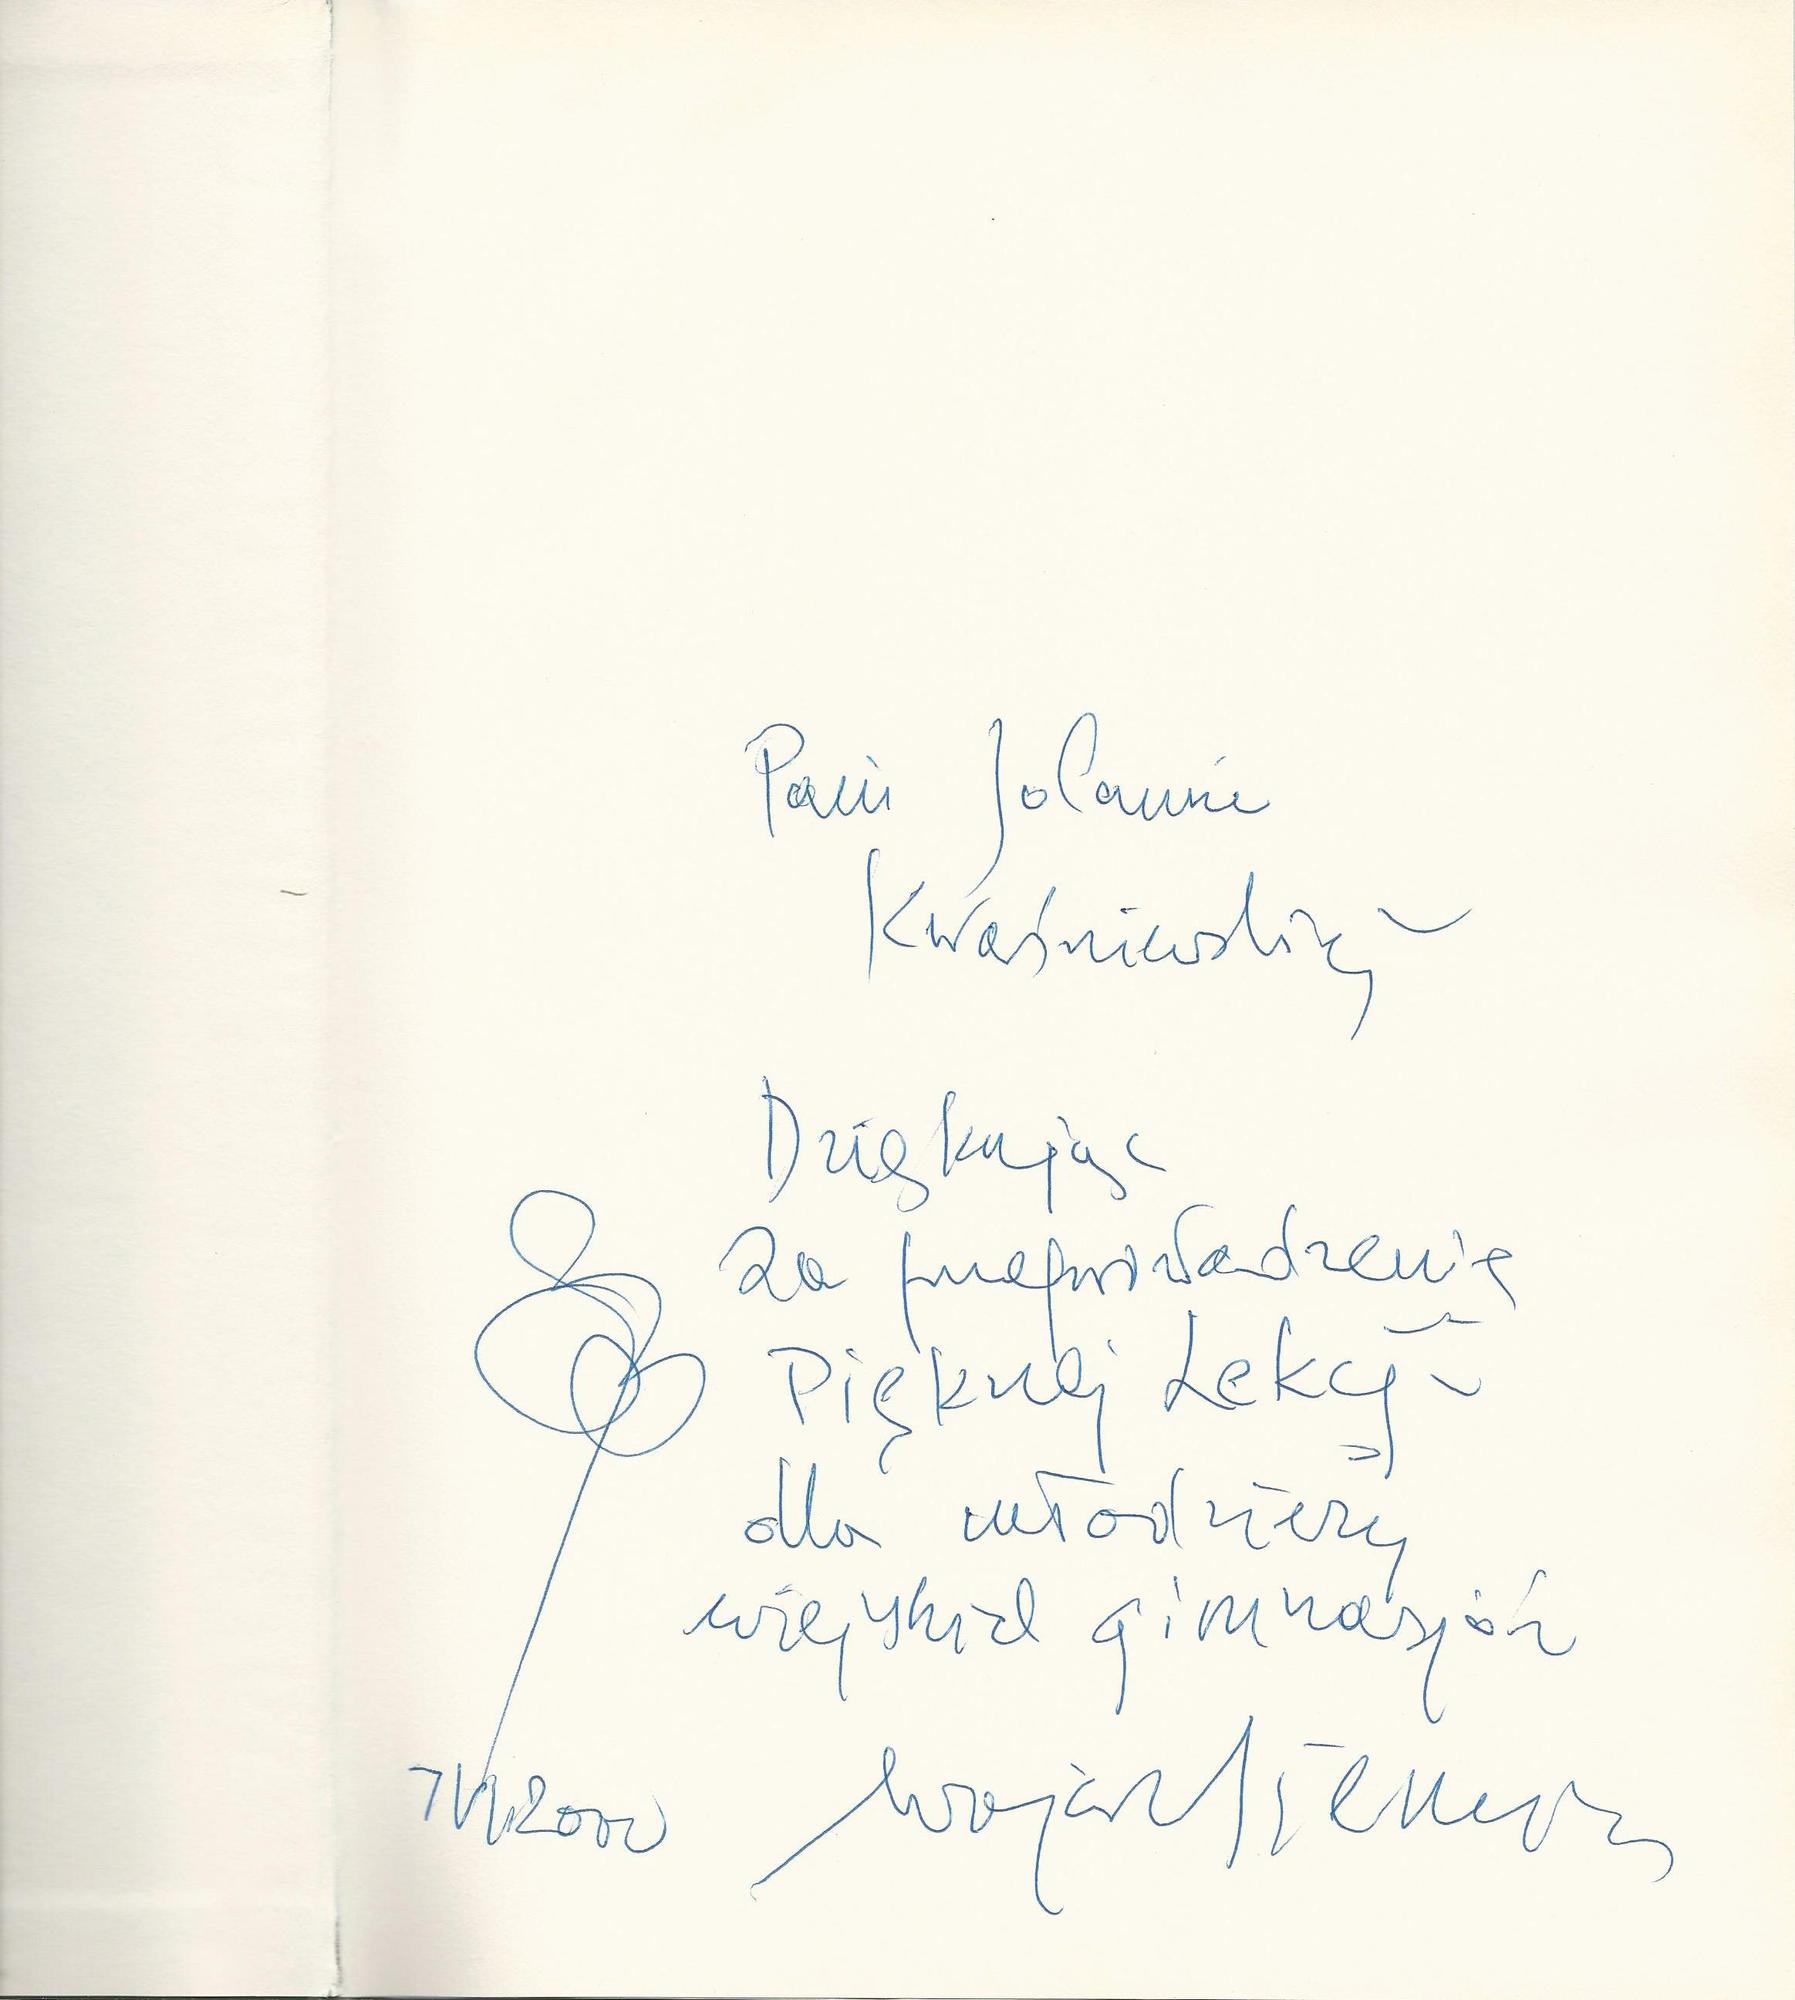 Pani Jolannie
Kwaśniewskiej
Dziękując
za przeprowadzenie
Pięknej Lekcji
dla młodzieży
wiejskich gimnazjów
Wojciech Siemion
7 VI 2000